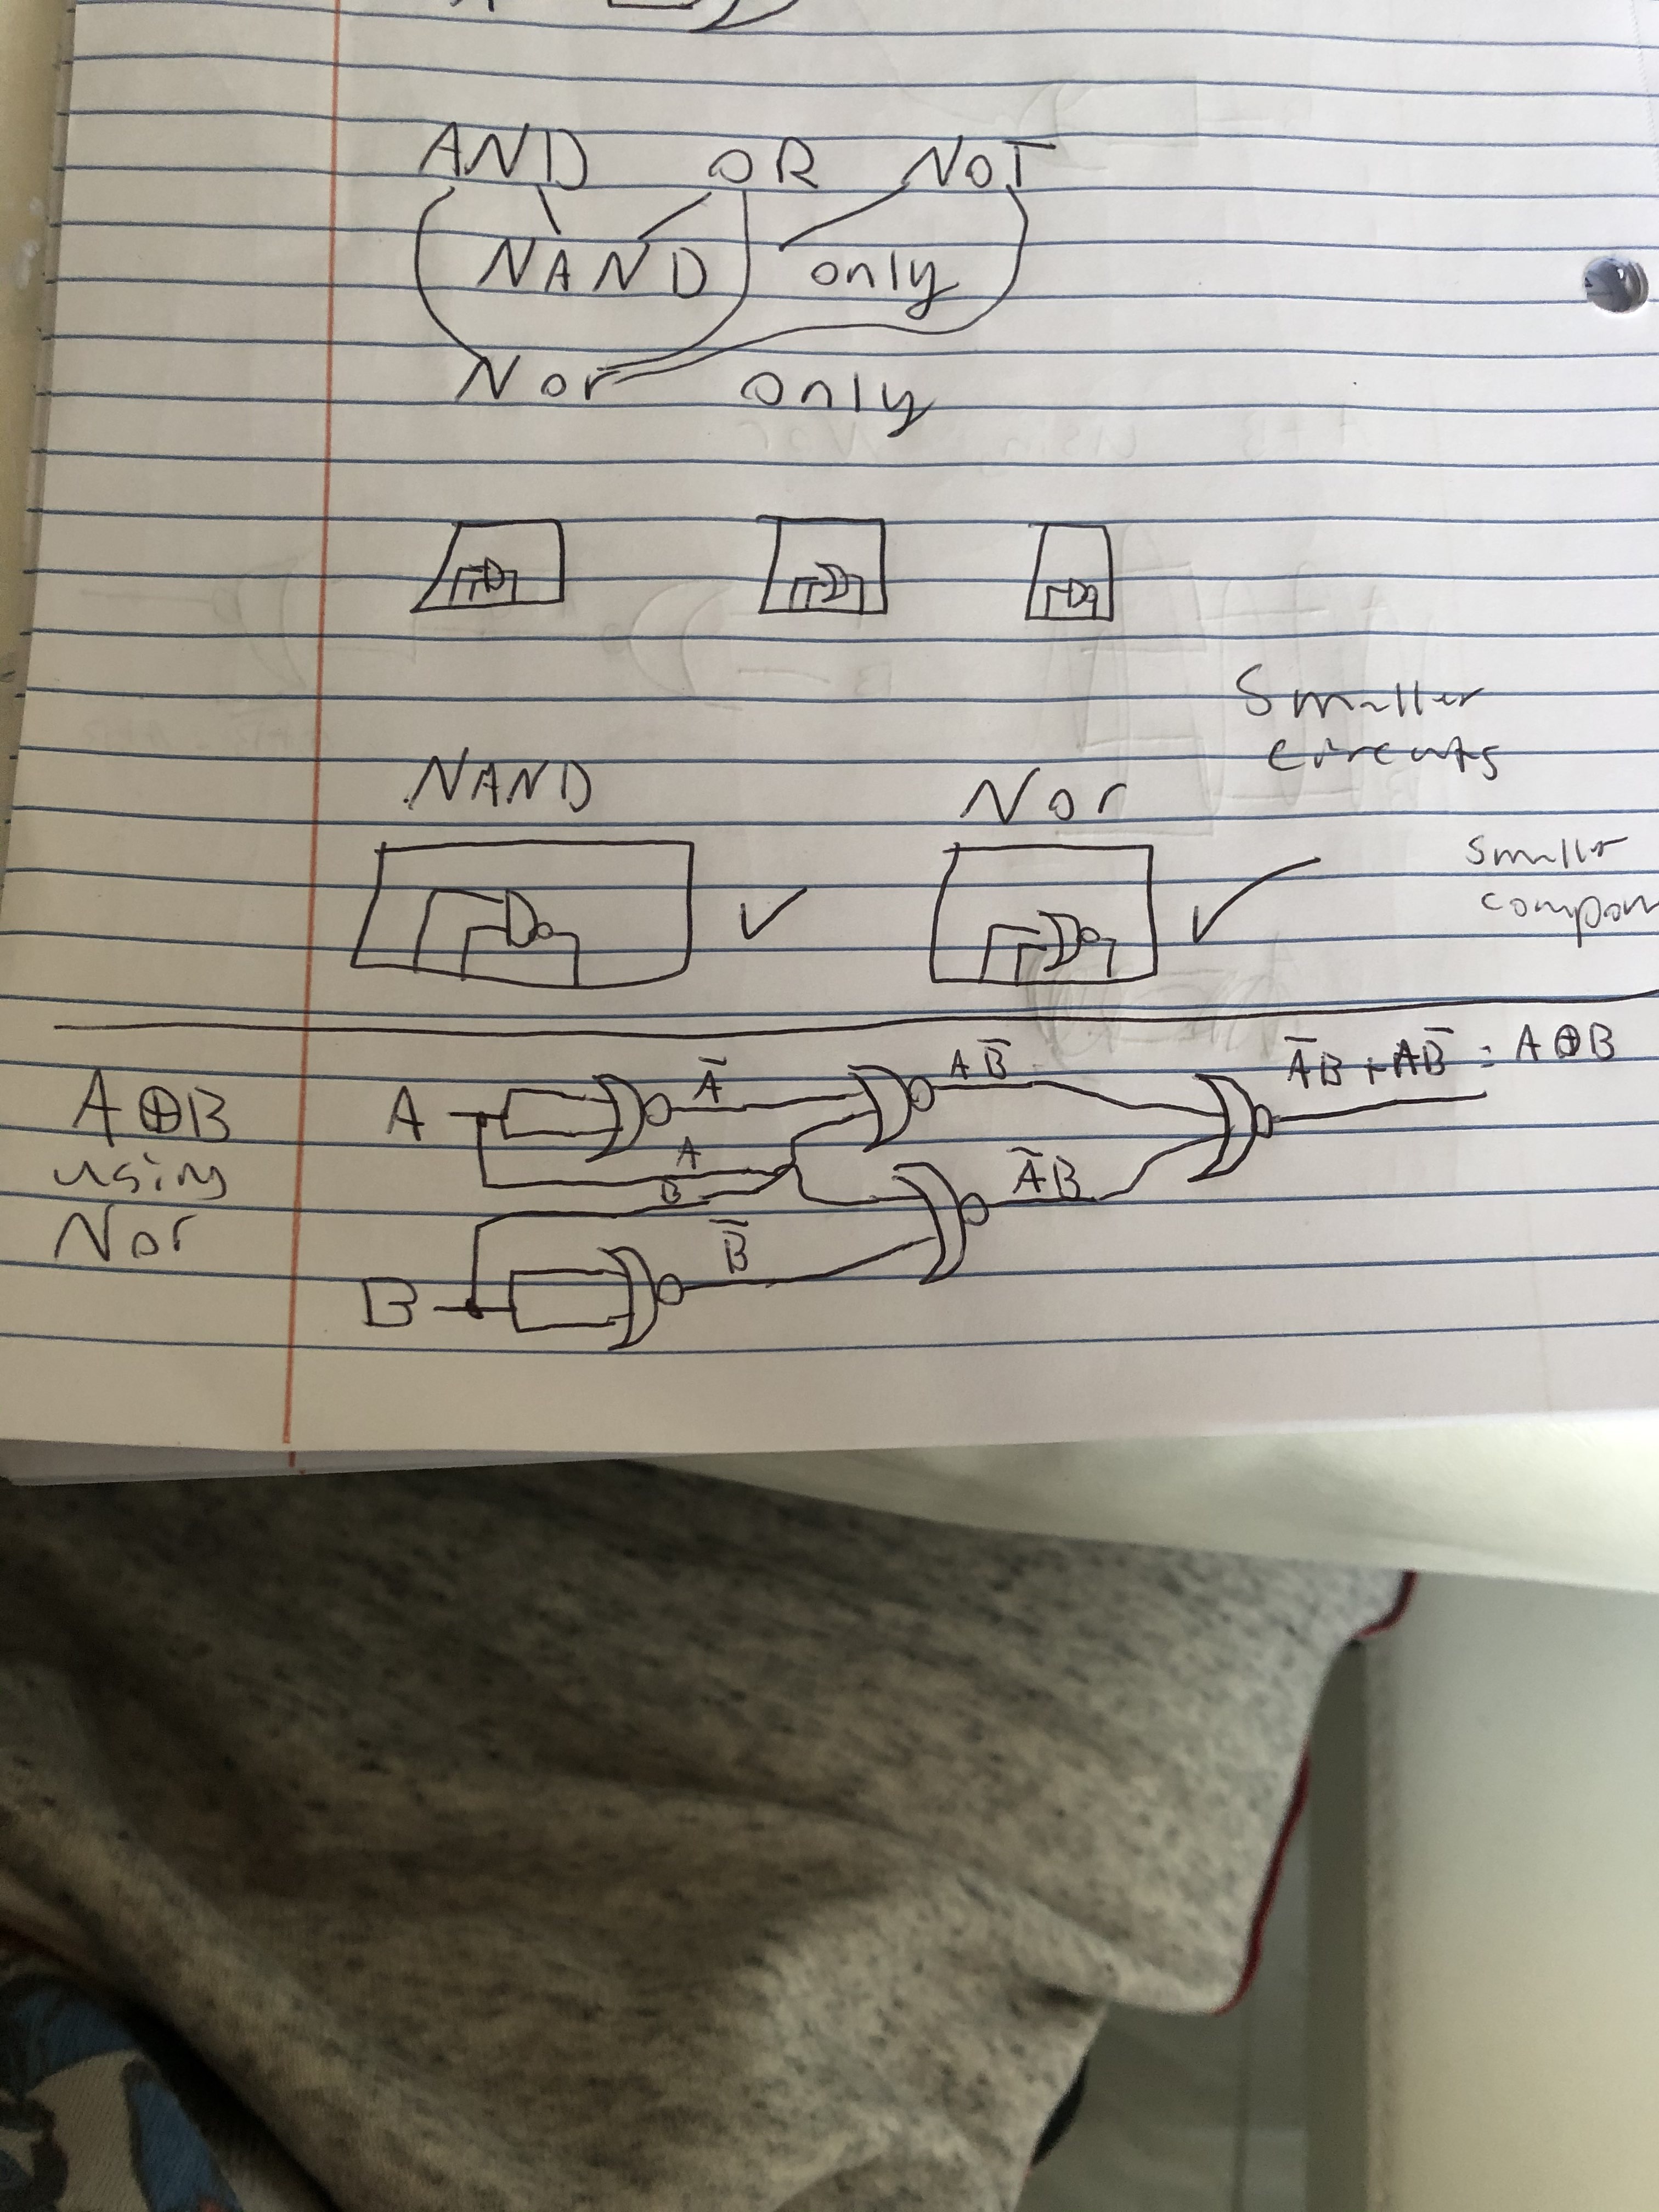 AND OR NOT
NAND only
Nor only
Smaller
circuits
NAND Nor
smaller
A⊕B
using
Nor
A
Ā
A
B
B
B̄
AB̄
ĀB
ĀB + AB̄ = A⊕B